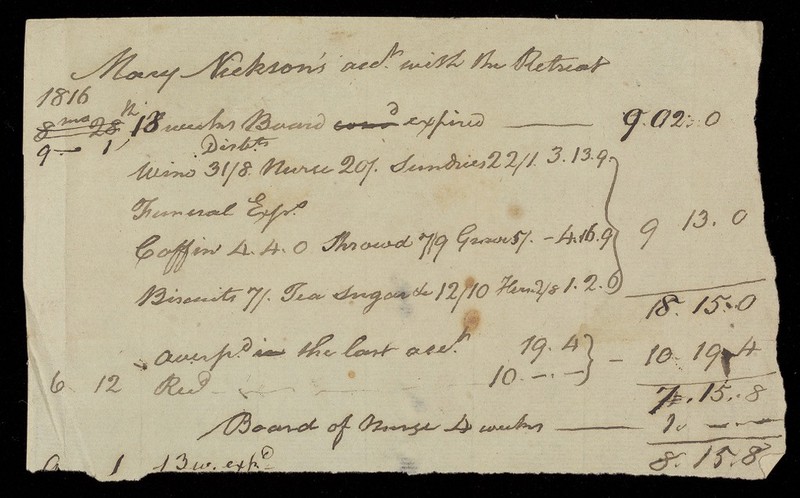 Mary Nickson's acct. with the Retreat
1816
8mo 28th 13 weeks Board expired — 9.02.0
9 — 1, Disbts
Wine 31/8 Nurse 20/. Sundries 22/1. 3.13.9
Funeral Exps.
Coffin 4.4.0 Shrowd 7/9 Grave 5/. - 4.16.9 9 13.0
Biscuits 7/. Tea Sugar &c 12/10 2/8 1.2.0
18.15.0
overpd in the last acct. 19.4 - 10.19.4
6 12 Recd 10.-.-
7.15.8
Board of Nurse 4 weeks — 1.-.-
8.15.8
9 1 13 w. expd